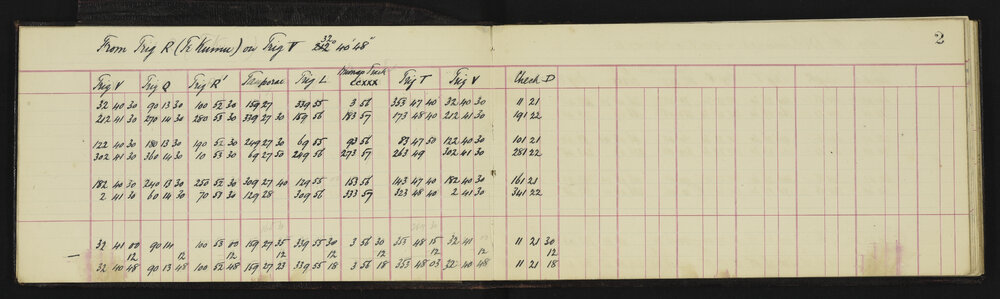 2
From Trig R (Te Kumu) on Trig V 32° 40' 48"
Trig V Trig Q Trig R' Trig L CCXXX Trig T Trig V Check D
32 40 30 90 13 30 100 52 30 159 27 339 55 3 56 353 47 40 32 40 30 11 21
212 41 30 270 14 30 280 53 30 339 27 30 159 56 183 57 173 48 40 212 41 30 191 22
122 40 30 180 13 30 190 52 30 249 27 30 69 55 93 56 83 47 50 122 40 30 101 21
302 41 30 360 14 30 10 53 30 69 27 50 249 56 273 57 263 49 302 41 30 281 22
182 40 30 240 13 30 250 52 30 309 27 40 129 55 153 56 143 47 40 182 40 30 161 21
2 41 30 60 14 30 70 53 30 129 28 309 56 333 57 323 48 40 2 41 30 341 22
32 41 00 90 14 100 53 00 159 27 35 339 55 30 3 56 30 353 48 15 32 41 11 21 30
12 12 12 12 12 12 12 12 12
32 40 48 90 13 48 100 52 48 159 27 23 339 55 18 3 56 18 353 48 03 32 40 48 11 21 18